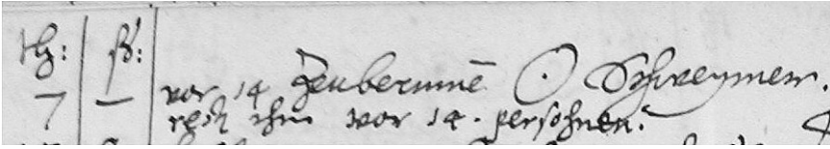 th: ß:
7 — vor 14 Zeuberinnē ⊙ Schweÿmer.
rech ihm vor 14. persohnen.